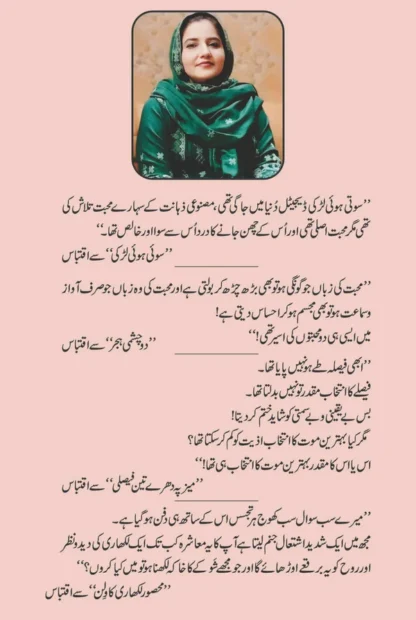 ”سوتی ہوئی لڑکی ڈیجیٹل دُنیا میں جاگی تھی، مصنوعی ذہانت کے سہارے محبت تلاش کی
تھی مگر محبت اصلی تھی اور اُس کے چھن جانے کا درد اُس سے سوا اور خالص تھا۔“
”سوئی ہوئی لڑکی“ سے اقتباس
”محبت کی زباں جو گونگی ہو تو بھی بڑھ چڑھ کر بولتی ہے اور محبت کی وہ زباں جو صرف آواز
و سماعت ہو تو بھی مجسم ہو کر احساس دیتی ہے!
میں ایسی ہی دو محبتوں کی اسیر تھی!“
”دو چشمی ہجر“ سے اقتباس
”ابھی فیصلہ طے ہو نہیں پایا تھا۔
فیصلے کا انتخاب مقدر تو نہیں بدلتا تھا۔
بس بے یقینی و بے سمتی کو شاید ختم کر دیتا!
مگر کیا بہترین موت کا انتخاب اذیت کو کم کر سکتا تھا؟
اس یا اس کا مقدر بہترین موت کا انتخاب ہی تھا!“
”میز پہ دھرے تین فیصلے“ سے اقتباس
”میرے سب سوال سب کھوج ہر تجسس اس کے ساتھ ہی دفن ہو گیا ہے۔
مجھ میں ایک شدید اشتعال جنم لیتا ہے آپ کا یہ معاشرہ کب تک ایک لکھاری کی دید و نظر
اور روح کو یہ برقعے اوڑھائے گا اور جو مجھے شو کے کا خاکہ لکھنا ہو تو میں کیا کروں؟“
”محصور لکھاری کا ولن“ سے اقتباس